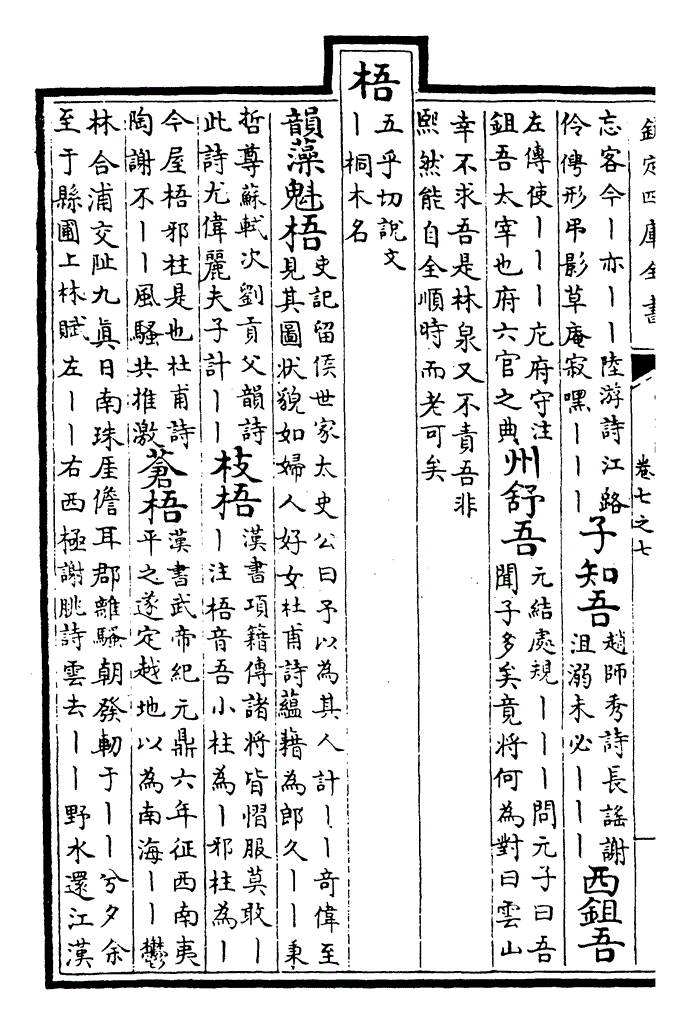 欽定四庫全書
卷七之七
忘客今丨亦丨丨陸游詩江路
伶俜形弔影草庵寂嘿丨丨丨
子知吾
趙師秀詩長謡謝
沮溺未必丨丨丨
西鉏吾
左傳使丨丨丨庀府守注
鉏吾太宰也府六官之典
州舒吾
元結處規丨丨丨問元子曰吾
聞子多矣竟將何為對曰雲山
幸不求吾是林泉又不責吾非
熙然能自全順時而老可矣
梧
五乎切說文
丨桐木名
韻藻魁梧
史記留侯世家太史公曰予以為其人計丨丨奇偉至
見其圖狀貌如婦人好女杜甫詩蘊藉為郎久丨丨秉
哲尊蘇軾次劉貢父韻詩
此詩尤偉麗夫子計丨丨
枝梧
漢書項籍傳諸將皆慴服莫敢丨
丨注梧音吾小柱為丨邪柱為丨
今屋梧邪柱是也杜甫詩
陶謝不丨丨風騷共推激
蒼梧
漢書武帝紀元鼎六年征西南夷
平之遂定越地以為南海丨丨鬱
林合浦交阯九眞日南珠厓儋耳郡離騷朝發軔于丨丨兮夕余
至于縣圃上林賦左丨丨右西極謝朓詩雲去丨丨野水還江漢